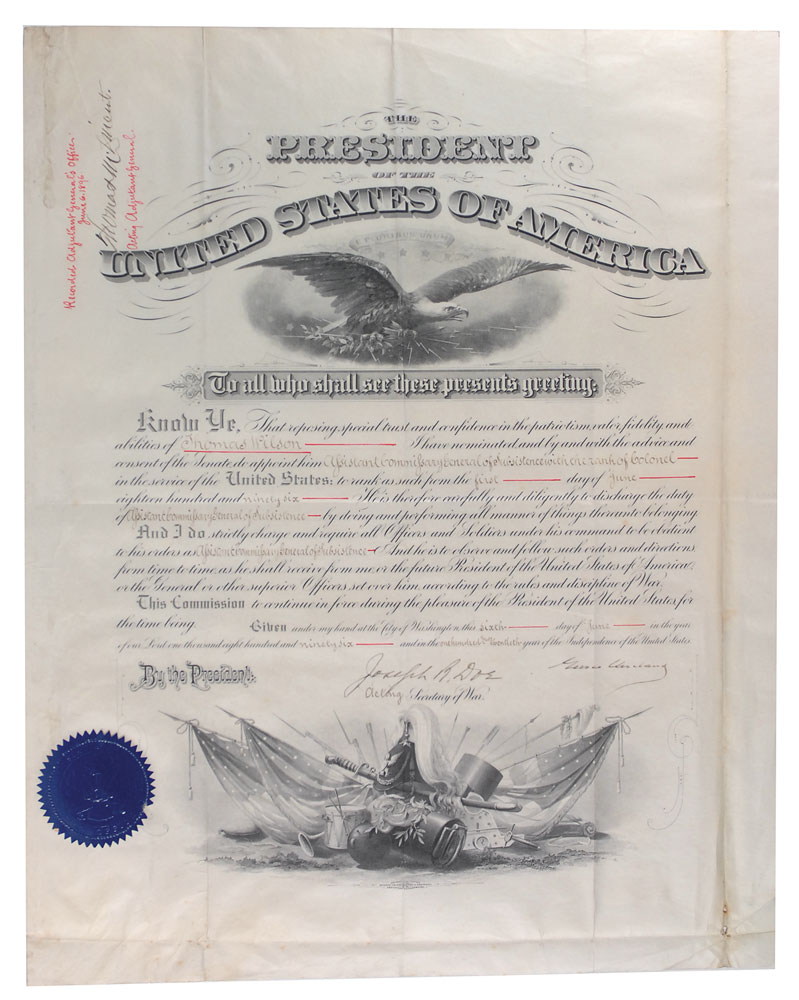 Recorded Adjutant General's Office
June 6. 1896
Thomas M. Vincent.
Acting Adjutant General.
THE
PRESIDENT
OF THE
UNITED STATES OF AMERICA
E PLURIBUS UNUM
To all who shall see these presents greeting:
Know Ye, That reposing special trust and confidence in the patriotism, valor, fidelity and
abilities of Thomas Wilson I have nominated, and by and with the advice and
consent of the Senate, do appoint him Assistant Commissary General of Subsistence with the rank of Colonel
in the service of the United States: to rank as such from the first day of June
eighteen hundred and ninety six He is therefore carefully and diligently to discharge the duty
of Assistant Commissary General of Subsistence by doing and performing all manner of things thereunto belonging
And I do strictly charge and require all Officers and Soldiers under his command to be obedient
to his orders as Assistant Commissary General of Subsistence And he is to observe and follow such orders and directions
from time to time, as he shall receive from me, or the future President of the United States of America,
or the General or other superior Officers set over him, according to the rules and discipline of War.
This Commission to continue in force during the pleasure of the President of the United States, for
the time being. Given under my hand at the City of Washington, this sixth day of June in the year
of our Lord one thousand eight hundred and ninety six and in the one hundred and twentieth year of the Independence of the United States.
By the President: Joseph B. Doe Grover Cleveland
Acting Secretary of War.